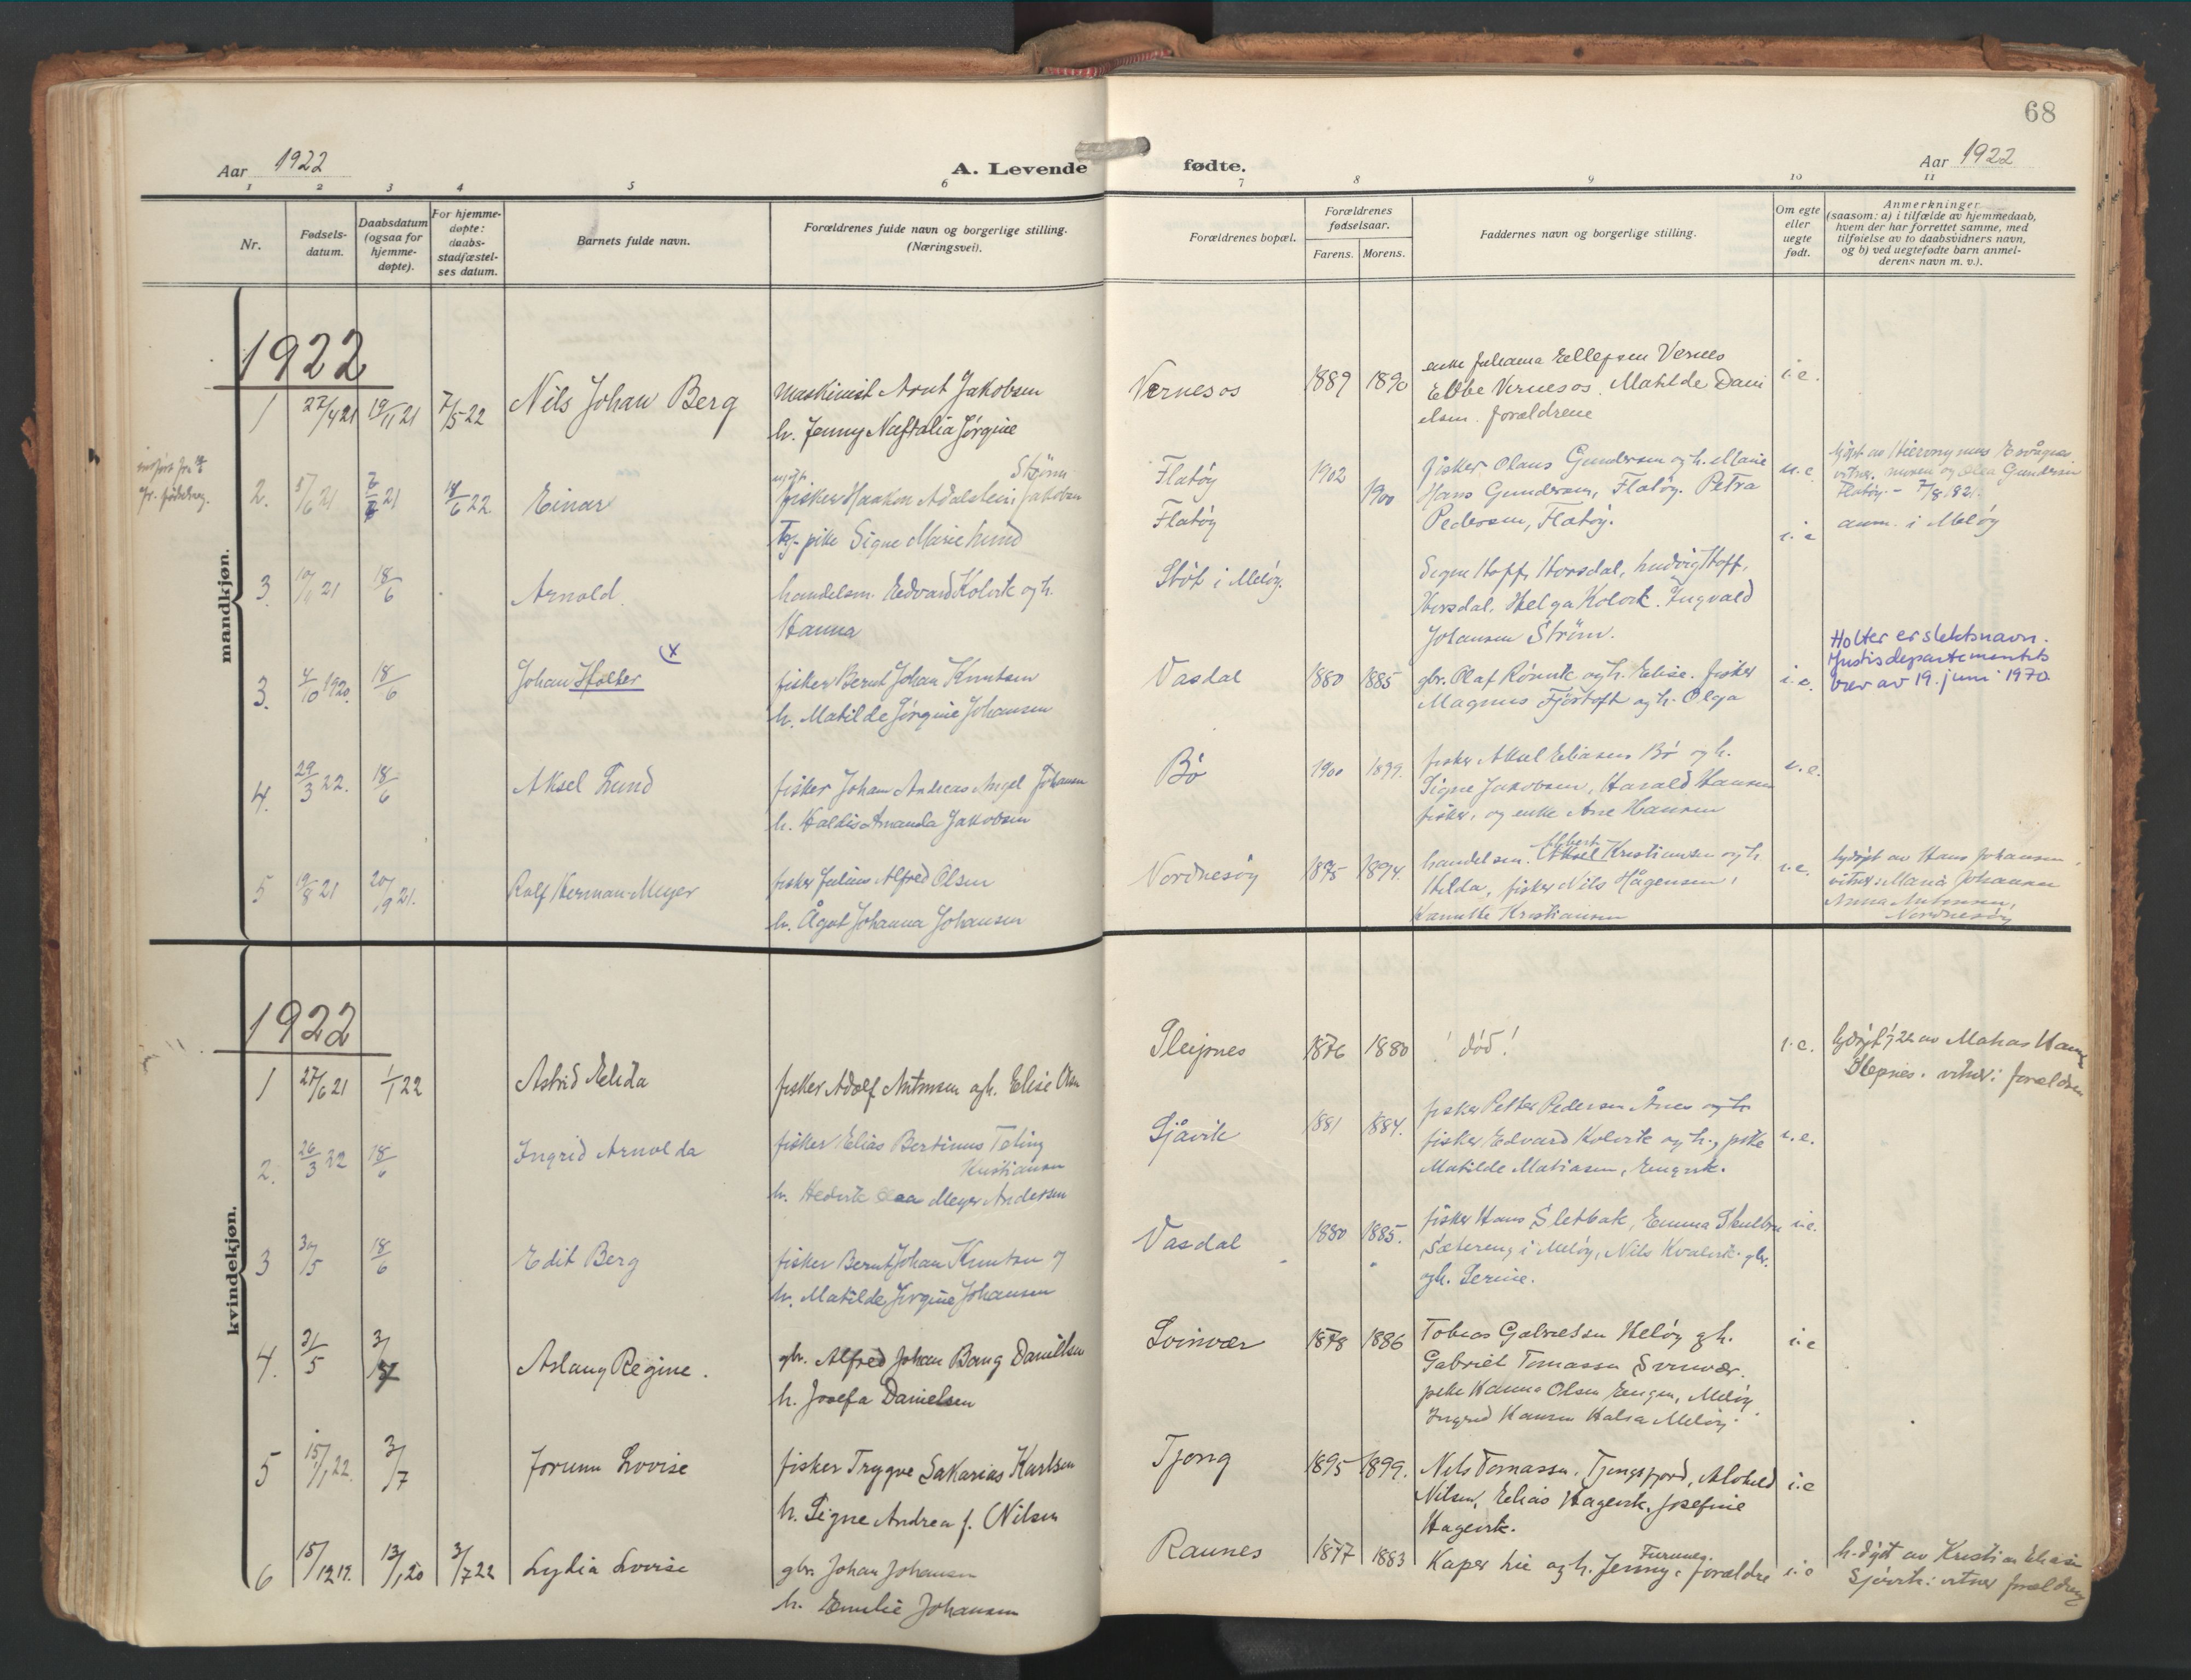 68
Aar 1922
A. Levende fødte.
Aar 1922
1 2 3 4 5 6 7 8 9 10 11
Nr.
Fødsels-
datum.
Daabsdatum
(ogsaa for
hjemme-
døpte).
For hjemme-
døpte:
daabs-
stadfæstel-
ses datum.
Barnets fulde navn.
Forældrenes fulde navn og borgerlige stilling.
(Næringsvei).
Forældrenes bopæl.
Forældrenes
fødselsaar.
Farens. Morens.
Faddernes navn og borgerlige stilling.
Om egte
eller
uegte
født.
Anmerkninger
(saasom: a) i tilfælde av hjemmedaab,
hvem der har forrettet samme, med
tilføielse av to daabsvidners navn,
og b) ved uegtefødte barn anmel-
derens navn m. v.).
mandkjøn.
1922
1 27/4 21 19/11 21 7/5 22 Nils Johan Berg
maskinist Arnt Jakobsen
h. Jenny Naftalia Jørgine
Vernesos 1889 1890
enke Juliana Ellefsen Vernes
Ebbe Vernesos. Matilde Dani
elsen. forældrene
i.e.
2. 5/6 21 21 18/6 22 Einar
Strøm
fisker Haakon Adalstein Jakobsen
pike Signe Marie Lund
Flatøy
Flatøy
1902 1900
fisker Olaus Gundersen og h. Marie
Hans Gundersen, Flatøy. Petra
Pedersen, Flatøy.
u.e.
av Hieronymus
og Olea Gundersen
Flatøy - 7/8 1921.
anm. i Meløy
3. 21 18/6 Arnold.
handelsm. Edvard Kolvik og h.
Hanna
Støt i Meløy.
i.e
Signe Hoff, Horsdal, Ludvig Hoff,
Horsdal, Helga Kolvik. Ingvald
Johansen Strøm.
3. 4/10 1920. 18/6 Johan Holter x
fisker Bernt Johan Knutsen
h. Matilde Jørgine Johansen
Vasdal 1880 1885
gbr. Olaf Rørvik og h. Elise. fisker
Magnus Fjørtoft og h. Olga
i.e.
Holter er slektsnavn.
Justisdepartementets
brev av 19. juni 1970.
4. 29/3 22. 18/6 Aksel Lund
fisker Johan Andreas Angel Johansen
h. Haldis Amanda Jakobsen
Bø 1900 1899.
fisker Aksel Eliasen Bø og h.
Signe Jakobsen, Harald Hansen
fisker, og enke Ane Hansen
u.e.
5 19/8 21 20/9 21. Rolf Herman Meyer
fisker Julius Alfred Olsen
h. Ågot Johanna Johansen
Nordnesøy 1895 1894.
handelsm. Kristiansen og h.
Hilda, fisker Nils Hågensen,
Kristiansen
i.e.
hjdøpt av Hans Johansen,
vitner: Maria Johansen
Anna Antonsen,
Nordnesøy
kvindekjøn.
1922
1 27/6 21 1/1 22 Astrid Elida
fisker Adolf Antonsen og h. Elise Olsen
Sleipnes 1876 1880
! død!
i.e.
hjdøpt 1/1 22 av Matias Hansen
Slepnes. vitner: forældrene
2. 26/3 22 18/6 Ingrid Arnolda
fisker Elias Bertinus Toling
Kristiansen
h. Hedvik Meyer Andersen
Sjåvik 1881 1884.
fisker Petter Pedersen Ånes og h.
fisker Edvard Kolvik og h., pike
Matilde Matiasen, Engvik.
i.e.
3 30/5 18/6 Edit Berg
fisker Bernt Johan Knutsen og
h. Matilde Jørgine Johansen
Vasdal 1880 1885.
fisker Hans Sletbak, Emma
Sætereng i Meløy, Nils Kvalvik gbr.
og h. Serine.
i.e.
4. 31/5 3/7 Aslaug Regine.
gbr. Alfred Johan Bang Danielsen
h. Josefa Danielsen
Svinvær 1878 1886
Tobias Gabrielsen Meløy og h.
Gabriel Tomassen Svinvær.
pike Hanna Olsen Engen, Meløy
Ingrid Hansen Halsa Meløy.
i.e
5 15/1 22. 3/7 Jorunn Lovise
fisker Trygve Sakarias Karlsen
h. Signe Andrea f. Nilsen
Tjong 1895 1899.
Nils Tomassen, Tjongsfjord, Alvhild
Nilsen, Elias Hagevik, Josefine
Hagevik.
i.e
6 15/12 19. 13/1 20 3/7 22 Lydia Lovise
gbr. Johan Johansen
h. Emelie Johansen
Raunes 1877 1883
Kaper Lie og h. Jenny, forældre
i.e
h.døpt av Kristian Eliasen
Sjøvik: vitner forældrene